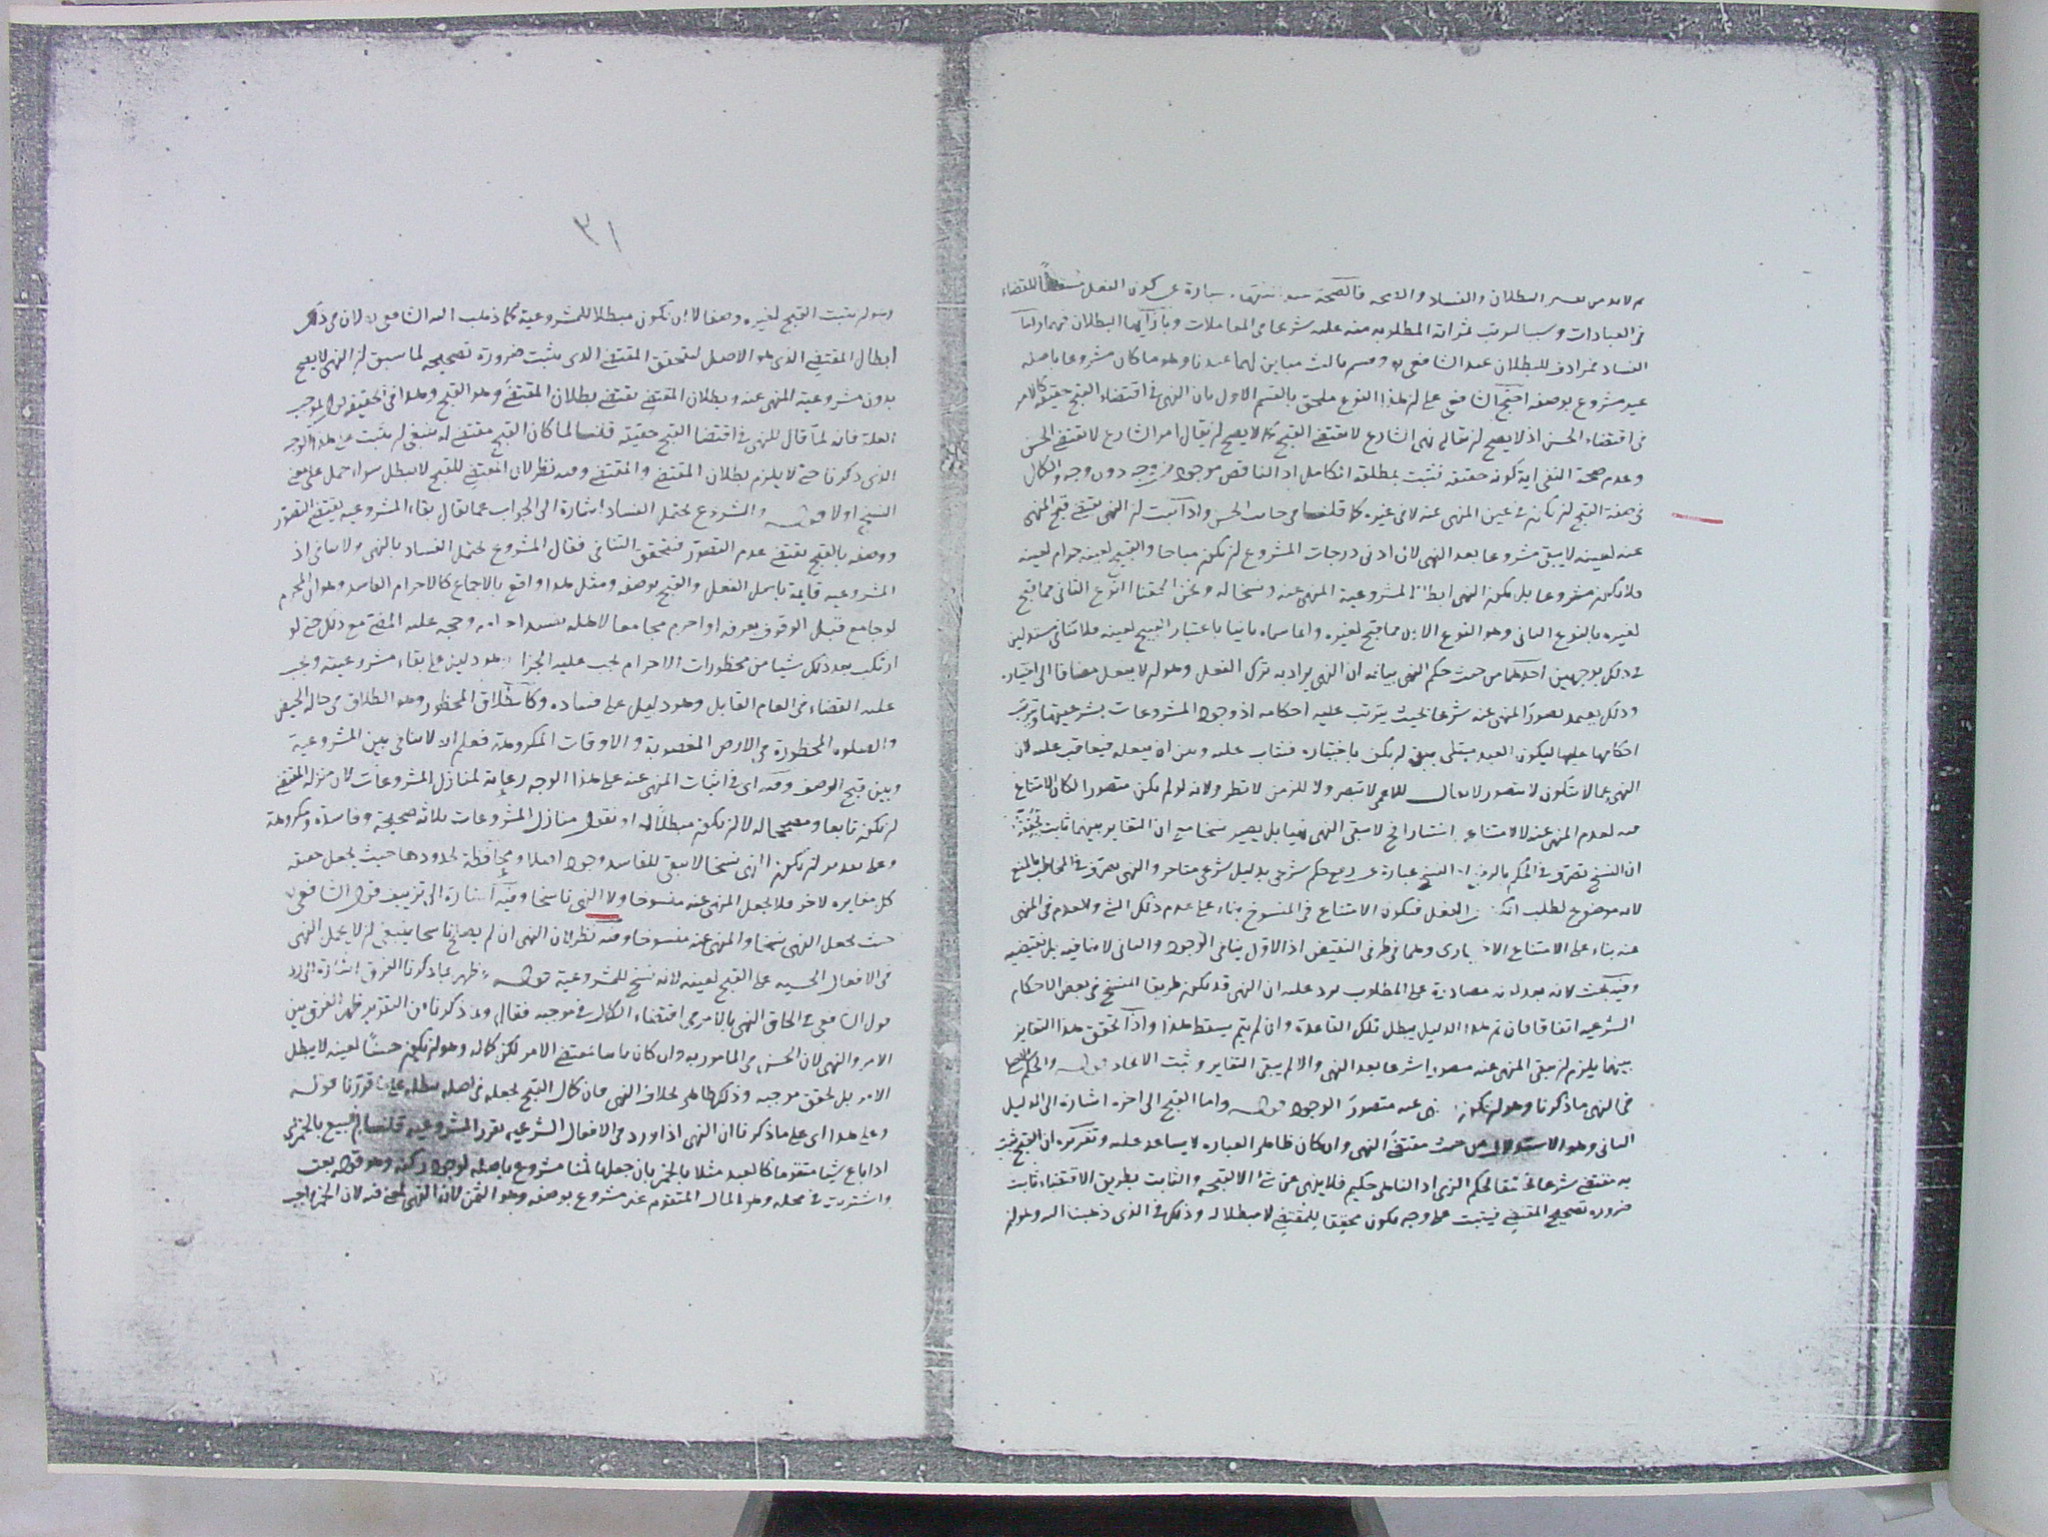 ثم لابد من تفسير البطلان والفساد والصحة فالصحة عبارة عن كون الفعل مسقطا للقضاء
في العبادات وسببا لترتب ثمراته المطلوبة منه عليه شرعا في المعاملات وبازآيهما البطلان فيهما واما
الفساد فمرادف للبطلان عند الشافعي وقسم ثالث مباين لهما عندنا وهو ما كان مشروعا باصله
غير مشروع بوصفه احتج الشافعي على ان هذا النوع ملحق بالقسم الاول بان النهي في اقتضاء القبح حقيقة كالامر
في اقتضاء الحسن اذ لا يصح ان يقال نهى الشارع لا يقتضي القبح كما لا يصح ان يقال امر الشارع لا يقتضي الحسن
وعدم صحة النفي اية كونه حقيقة فثبت بمطلقه الكامل اذ الناقص موجود من وجه دون وجه والكمال
في صفة القبح ان يكون في عين المنهي عنه لا في غيره كما قلنا في جانب الحسن واذا ثبت ان النهي يقتضي قبح المنهي
عنه لعينه لا يبقى مشروعا بعد النهي لان ادنى درجات المشروع ان يكون مباحا والقبيح لعينه حرام لعينه
فلا يكون مشروعا بل يكون النهي ابطالا لمشروعية المنهي عنه ونسخا له ونحن الحقنا النوع الثاني مما قبح
لغيره بالنوع الثاني وهو النوع الاول مما قبح لغيره وانما سماه ثانيا باعتبار القبيح لعينه فلا تنافي مستدلين
في ذلك بوجهين احدهما من حيث حكم النهي بيانه ان النهي يراد به ترك الفعل وهو ان لا يفعل مضافا الى اختياره
وذلك يعتمد تصور المنهي عنه شرعا بحيث يترتب عليه احكامه اذ وجود المشروعات بشرعيتها وترتب
احكامها عليها ليكون العبد مبتلى بين ان يكف باختياره فيثاب عليه وبين ان يفعله فيعاقب عليه لان
النهي عما لا يتكون لا يتصور لا يقال للاعمى لا تبصر ولا للزمن لا تطر ولانه لو لم يكن متصورا لكان الامتناع
عنه لعدم المنهي عنه لا لامتناعه فلا يبقى النهي نهيا بل يصير نسخا مع ان التغاير بينهما ثابت
ان النسخ تصرف في الحكم بالرفع اذ النسخ عبارة عن رفع حكم شرعي بدليل شرعي متاخر والنهي تصرف في المخاطب بالمنع
لانه موضوع لطلب الكف عن الفعل فيكون الامتناع في المنسوخ بناء على عدم ذلك الشيء والعدم في المنهي
عنه بناء على الامتناع الاختياري وهما في طرفي النقيض اذ الاول ينافي الوجود والثاني لا ينافيه بل يقتضيه
وفيه بحث لانه مصادرة على المطلوب يرد عليه ان النهي قد يكون طريقا للنسخ في بعض الاحكام
الشرعية اتفاقا فان تم هذا الدليل يبطل تلك القاعدة وان لم يتم يسقط هذا واذا تحقق هذا التغاير
بينهما يلزم ان يبقى المنهي عنه متصورا شرعا بعد النهي والا لم يبقى التغاير وثبت الاتحاد قوله والحكم الاصلي
في النهي ما ذكرنا وهو ان يكون المنهي عنه متصور الوجود قوله واما القبح الى اخره اشارة الى الدليل
الثاني وهو الاستدلال من حيث مقتضى النهي وان كان ظاهر العبارة لا يساعد عليه وتقريره ان القبح ثبت
به مقتضى شرعا تحقيقا لحكم النهي اذ الناهي حكيم فلا ينهى عن شئ الا لقبحه والثابت بطريق الاقتضاء ثابت
ضرورة تصحيح المقتضي فيثبت على وجه يكون محققا للمقتضي لا مبطلا له وذلك في الذي ذهبنا اليه وهو ان
٣١
وهو ان يثبت القبح لغيره وصفا لا ان يكون مبطلا للمشروعية كما ذهب اليه الشافعي لان في ذلك
ابطال المقتضي الذي هو الاصل لتحقق المقتضى الذي يثبت ضرورة تصحيحه لما سبق ان النهي لا يصح
بدون مشروعية المنهي عنه وبطلان المقتضي يقتضي بطلان المقتضى وهو القبح وهذا في الحقيقة قول بموجب
العلة فانه لما قال للنهي في اقتضا القبح حقيقة قلنا لما كان القبح مقتضى له ينبغي ان يثبت على هذا الوجه
الذي ذكرنا حتى لا يلزم بطلان المقتضي والمقتضى وفيه نظر لان المقتضي للقبح لا يبطل سواء حمل على معنى
النسخ اولا قوله والمشروع يحتمل الفساد اشارة الى الجواب عما يقال بقاء المشروعية يقتضي التصور
ووصفه بالقبح يقتضي عدم التصور فيتحقق التنافي فقال المشروع يحتمل الفساد بالنهي ولا تنافي اذ
المشروعية قايمة باصل الفعل والقبح بوصفه ومثل هذا واقع بالاجماع كالاحرام الفاسد وهو ان المحرم
لو جامع قبل الوقوف بعرفة او احرم مجامعا لاهله يفسد احرامه وحجه عليه المضي مع ذلك حتى لو
ارتكب بعد ذلك شيا من محظورات الاحرام يجب عليه الجزاء وهو دليل على بقاء مشروعيته ويجب
عليه القضاء في العام القابل وهو دليل على فساده وكالطلاق المحظور وهو الطلاق في حالة الحيض
والصلوة المحظورة في الارض المغصوبة والاوقات المكروهة فعلم ان لا تنافي بين المشروعية
وبين قبح الوصف وفيه اي في اثبات المنهي عنه على هذا الوجه رعاية لمنازل المشروعات لان منزلة المقتضى
ان يكون تابعا ومصححا له لا ان يكون مبطلا له او نقول منازل المشروعات ثلاثة صحيحة وفاسدة ومكروهة
وعلى تقدير ان يكون النهي نسخا لا يبقى للفاسد وجود اصلا ومحافظة لحدودها حيث يجعل حقيقة
كل مغايره لاخر فلا يجعل المنهي عنه منسوخا ولا النهي ناسخا وفيه اشارة الى تزييف قول الشافعي
حيث يجعل النهي نسخا والمنهي عنه منسوخا وفيه نظر لان النهي ان لم يصلح ناسخا ينبغي ان لا يحمل النهي
في الافعال الحسية على القبح لعينه لانه نسخ للمشروعية قوله ظهر بما ذكرنا الفرق اشارة الى رد
قول الشافعي في الحاق النهي بالامر في اقتضاء الكمال في موجبه فقال وبما ذكرنا من التقرير ظهر الفرق بين
الامر والنهي لان الحسن في المامور به وان كان ثابتا بمقتضى الامر لكن كماله وهو ان يكون حسنا لعينه لا يبطل
الامر بل يحقق موجبه وذلك ظاهر بخلاف النهي فان كمال القبح بجعله في اصله يبطله على ما قررنا قوله
وعلى هذا اي على ما ذكرنا ان النهي اذا ورد في الافعال الشرعية يقرر المشروعية قلنا ان البيع بالخمر اي
اذا باع شيا متقوما كالعبد مثلا بالخمر بان جعلها ثمنا مشروع باصله لوجود ركنه وهو قوله بعت
واشتريت في محله وهو المال المتقوم غير مشروع بوصفه وهو الثمن لان النهي لمعنى فيه لان الخمر واجب